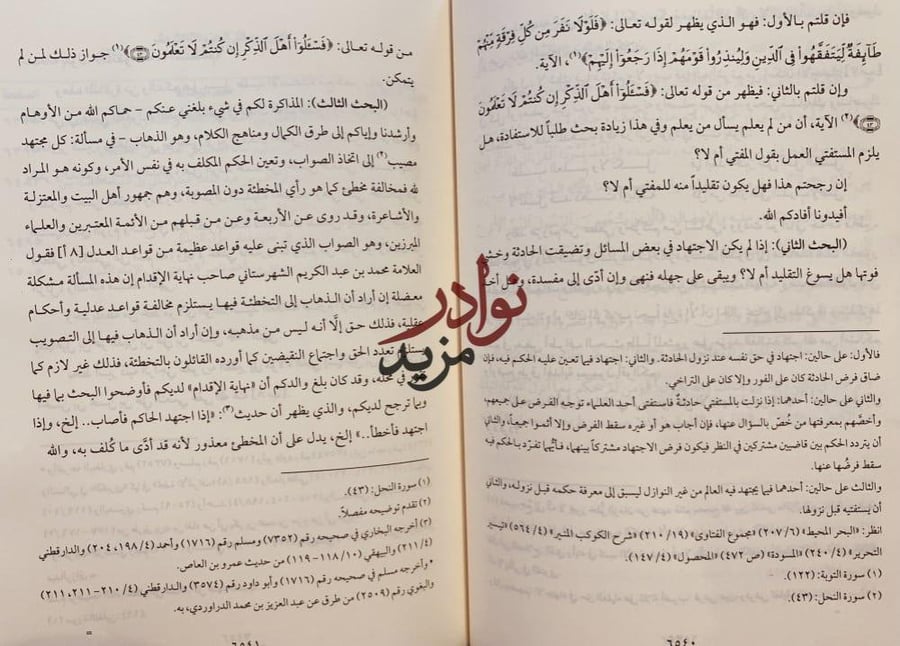 فإن قلتم بالأول: فهو الذي يظهر لقوله تعالى: ﴿فَلَوْلَا نَفَرَ مِن كُلِّ فِرْقَةٍ مِّنْهُمْ
طَآئِفَةٌ لِّيَتَفَقَّهُوا۟ فِى ٱلدِّينِ وَلِيُنذِرُوا۟ قَوْمَهُمْ إِذَا رَجَعُوٓا۟ إِلَيْهِمْ﴾(١)، الآية.
وإن قلتم بالثاني: فيظهر من قوله تعالى: ﴿فَسْـَٔلُوٓا۟ أَهْلَ ٱلذِّكْرِ إِن كُنتُمْ لَا تَعْلَمُونَ
﴿٤٣﴾﴾(٢) الآية، أن من لم يعلم يسأل من يعلم وفي هذا زيادة بحث طلباً للاستفادة، هل
يلزم المستفتي العمل بقول المفتي أم لا؟
إن رجحتم هذا فهل يكون تقليداً منه للمفتي أم لا؟
أفيدونا أفادكم الله.
(البحث الثاني): إذا لم يكن الاجتهاد في بعض المسائل وتضيقت الحادثة وخشي
فوتها هل يسوغ التقليد أم لا؟ ويبقى على جهله فنهى وإن أدّى إلى مفسدة،
فالأول: على حالين: اجتهاد في حق نفسه عند نزول الحادثة. والثاني: اجتهاد فيما تعين عليه الحكم فيه، فإن
ضاق فرض الحادثة كان على الفور وإلا كان على التراخي.
والثاني على حالين: أحدهما: إذا نزلت بالمستفتي حادثةٌ فاستفتى أحد العلماء توجه الفرض على جميعهم،
وأخصَّهم بمعرفتها من خُصّ بالسؤال عنها، فإن أجاب هو أو غيره سقط الفرض وإلا أثموا جميعاً، والثاني
أن يتردد الحكم بين قاضيين مشتركين في النظر فيكون فرض الاجتهاد مشتركاً بينهما، فأيُّهما تفرّد بالحكم فيه
سقط فرضُها عنها.
والثالث على حالين: أحدهما فيما يجتهد فيه العالم من غير النوازل ليسبق إلى معرفة حكمه قبل نزوله، والثاني
أن يستفتيه قبل نزولها.
انظر: «البحر المحيط» (٢٠٧/٦) «مجموع الفتاوى» (٢١٠/١٩) «شرح الكوكب المنير» (٥٦٤/٤) «تيسير
التحرير» (٢٤٠/٤) «المسودة» (ص ٤٧٢) «المحصول» (١٤٧/٤).
(١) سورة التوبة: (١٢٢).
(٢) سورة النحل: (٤٣).
٦٥٤٠
من قوله تعالى: ﴿فَسْـَٔلُوٓا۟ أَهْلَ ٱلذِّكْرِ إِن كُنتُمْ لَا تَعْلَمُونَ ﴿٤٣﴾﴾(١) جواز ذلك لمن لم
يتمكن.
(البحث الثالث): المذاكرة لكم في شيء بلغني عنكم - حماكم الله من الأوهام
وأرشدنا وإياكم إلى طرق الكمال ومناهج الكلام، وهو الذهاب - في مسألة: كل مجتهد
مصيب(٢) إلى اتخاذ الصواب، وتعين الحكم المكلف به في نفس الأمر، وكونه هو المراد
لله فمخالفة مخطئ كما هو رأي المخطئة دون المصوبة، وهم جمهور أهل البيت والمعتزلة
والأشاعرة، وقد روى عن الأربعة وعن من قبلهم من الأئمة المعتبرين والعلماء
المبرزين، وهو الصواب الذي تبنى عليه قواعد عظيمة من قواعد العدل [٨أ] فقول
العلامة محمد بن عبد الكريم الشهرستاني صاحب نهاية الإقدام إن هذه المسألة مشكلة
معضلة إن أراد أن الذهاب إلى التخطئة فيها يستلزم مخالفة قواعد عدلية وأحكام
عقلية، فذلك حق إلَّا أنه ليس من مذهبه، وإن أراد أن الذهاب فيها إلى التصويب
تعدد الحق واجتماع النقيضين كما أورده القائلون بالتخطئة، فذلك غير لازم كما
في محله، وقد كان بلغ والدكم أن «نهاية الإقدام» لديكم فأوضحوا البحث بما فيها
وبما ترجح لديكم، والذي يظهر أن حديث(٣): «إذا اجتهد الحاكم فأصاب.. إلخ، وإذا
اجتهد فأخطأ..» إلخ، يدل على أن المخطئ معذور لأنه قد أدَّى ما كُلف به، والله
(١) سورة النحل: (٤٣).
(٢) تقدم توضيحه مفصلاً.
(٣) أخرجه البخاري في صحيحه رقم (٧٣٥٢) ومسلم رقم (١٧١٦) وأحمد (١٩٨/٤، ٢٠٤) والدارقطني
(٢١١/٤) والبيهقي (١١٨/١٠ - ١١٩) من حديث عمرو بن العاص.
• وأخرجه مسلم في صحيحه رقم (١٧١٦) وأبو داود رقم (٣٥٧٤) والدارقطني (٢١٠/٤ - ٢١١، ٢١١)
والبغوي رقم (٢٥٠٩) من طرق عن عبد العزيز بن محمد الدراوردي، به.
٦٥٤١
نوادر
مزيد